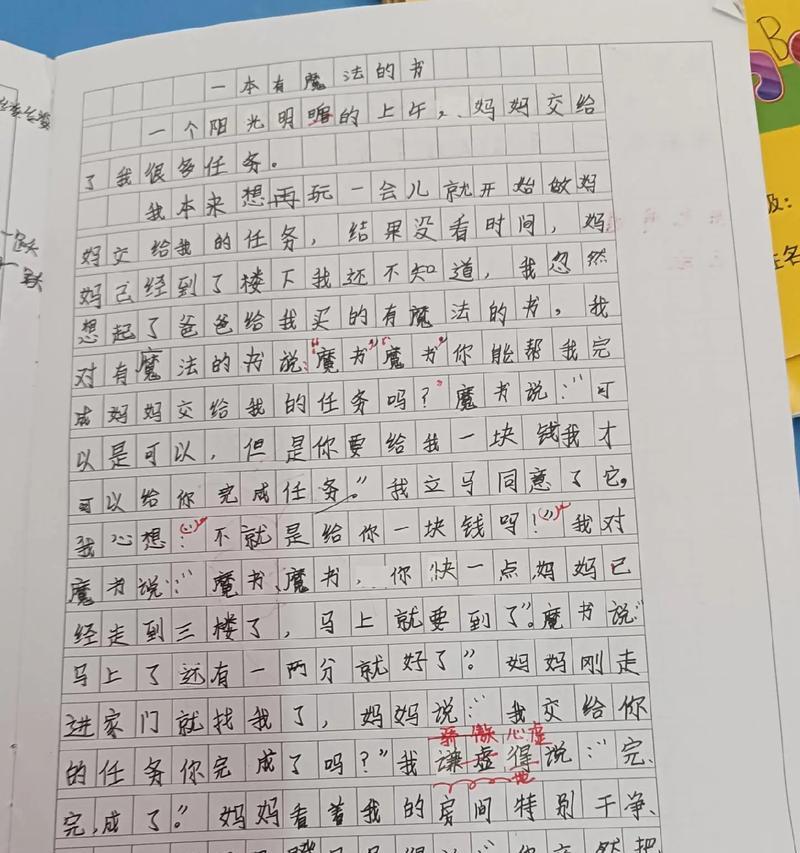 一本有魔法的书
一个阳光明媚的上午，妈妈交给
了我很多任务。
我本来想再玩一会儿就开始做妈
妈交给我的任务，结果没看时间，妈
妈已经到了楼下我还不知道，我忽然
想起了爸爸给我买的有魔法的书。我
对有魔法的书说：“魔书”“魔书你能帮我完
成妈妈交给我的任务吗？”魔书说：“可
以是可以，但是你要给我一块钱我才
可以给你完成任务。”我立马同意了它。
我心想：“不就是给你一块钱吗！”我对
魔书说：“魔书、魔书，你快一点妈妈已
经走到三楼了，马上就要到了”。魔书说：“
马上了还有一两分就好了”。妈妈刚走
进家门就找我了，妈妈说：“我交给你
骄傲 心虚
的任务你完成了吗？”我谦虚得说：“完、
地
完，成了”。妈妈看着我的房间特别干净、